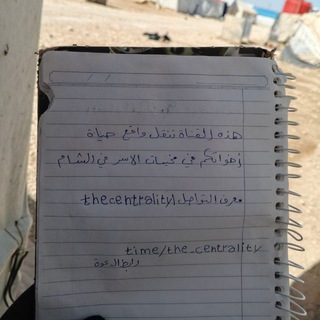 هذه القناة تنقل واقع حياة
أخواتكم في مخيمات الاسر في الشام
معرف التواصل thecentrality1
time/the_centrality
رابط الدعوة